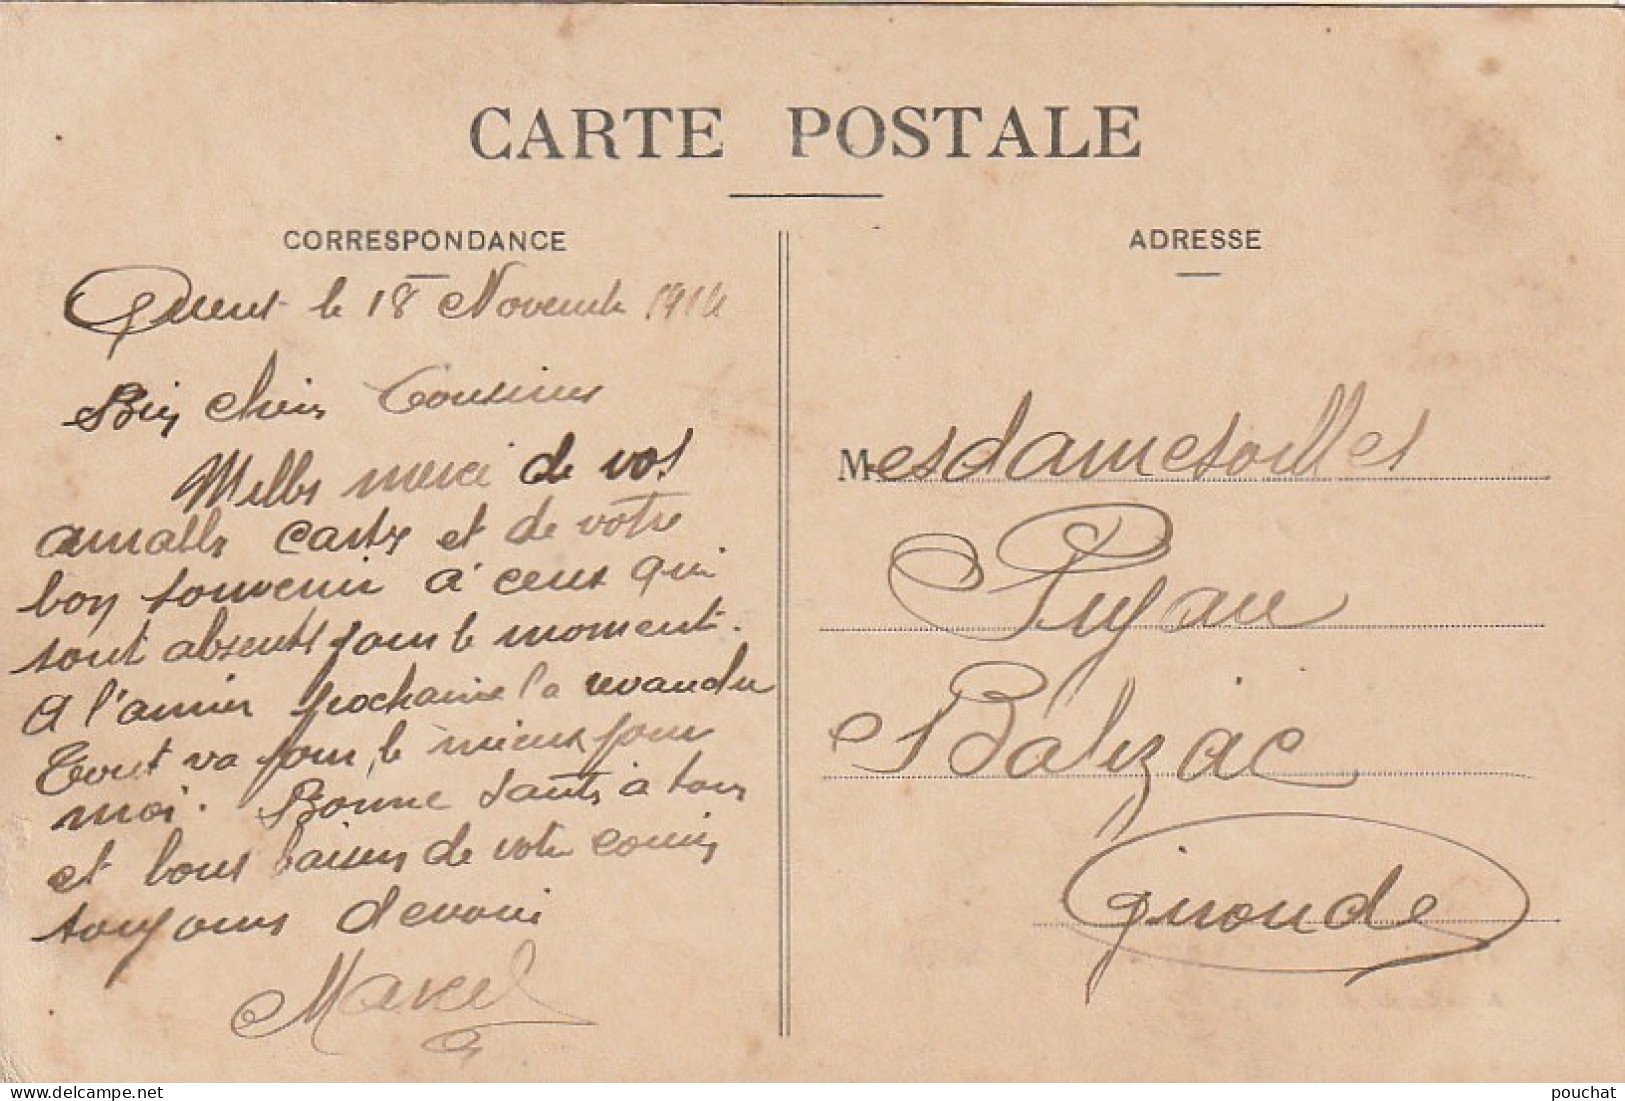 CARTE POSTALE
CORRESPONDANCE
le 18 Novembre 1914
Bien chères Cousines
Milles merci de vos
aimables cartes et de votre
bon souvenir à ceux qui
sont absents pour le moment.
A l'année prochaine la revandu
Tout va pour le mieux pour
moi. Bonne santé à tous
et bons baisers de votre cousin
toujours devoué
Marcel
ADRESSE
Mesdamesoilles
Puyau
Balizac
Gironde
pouchat